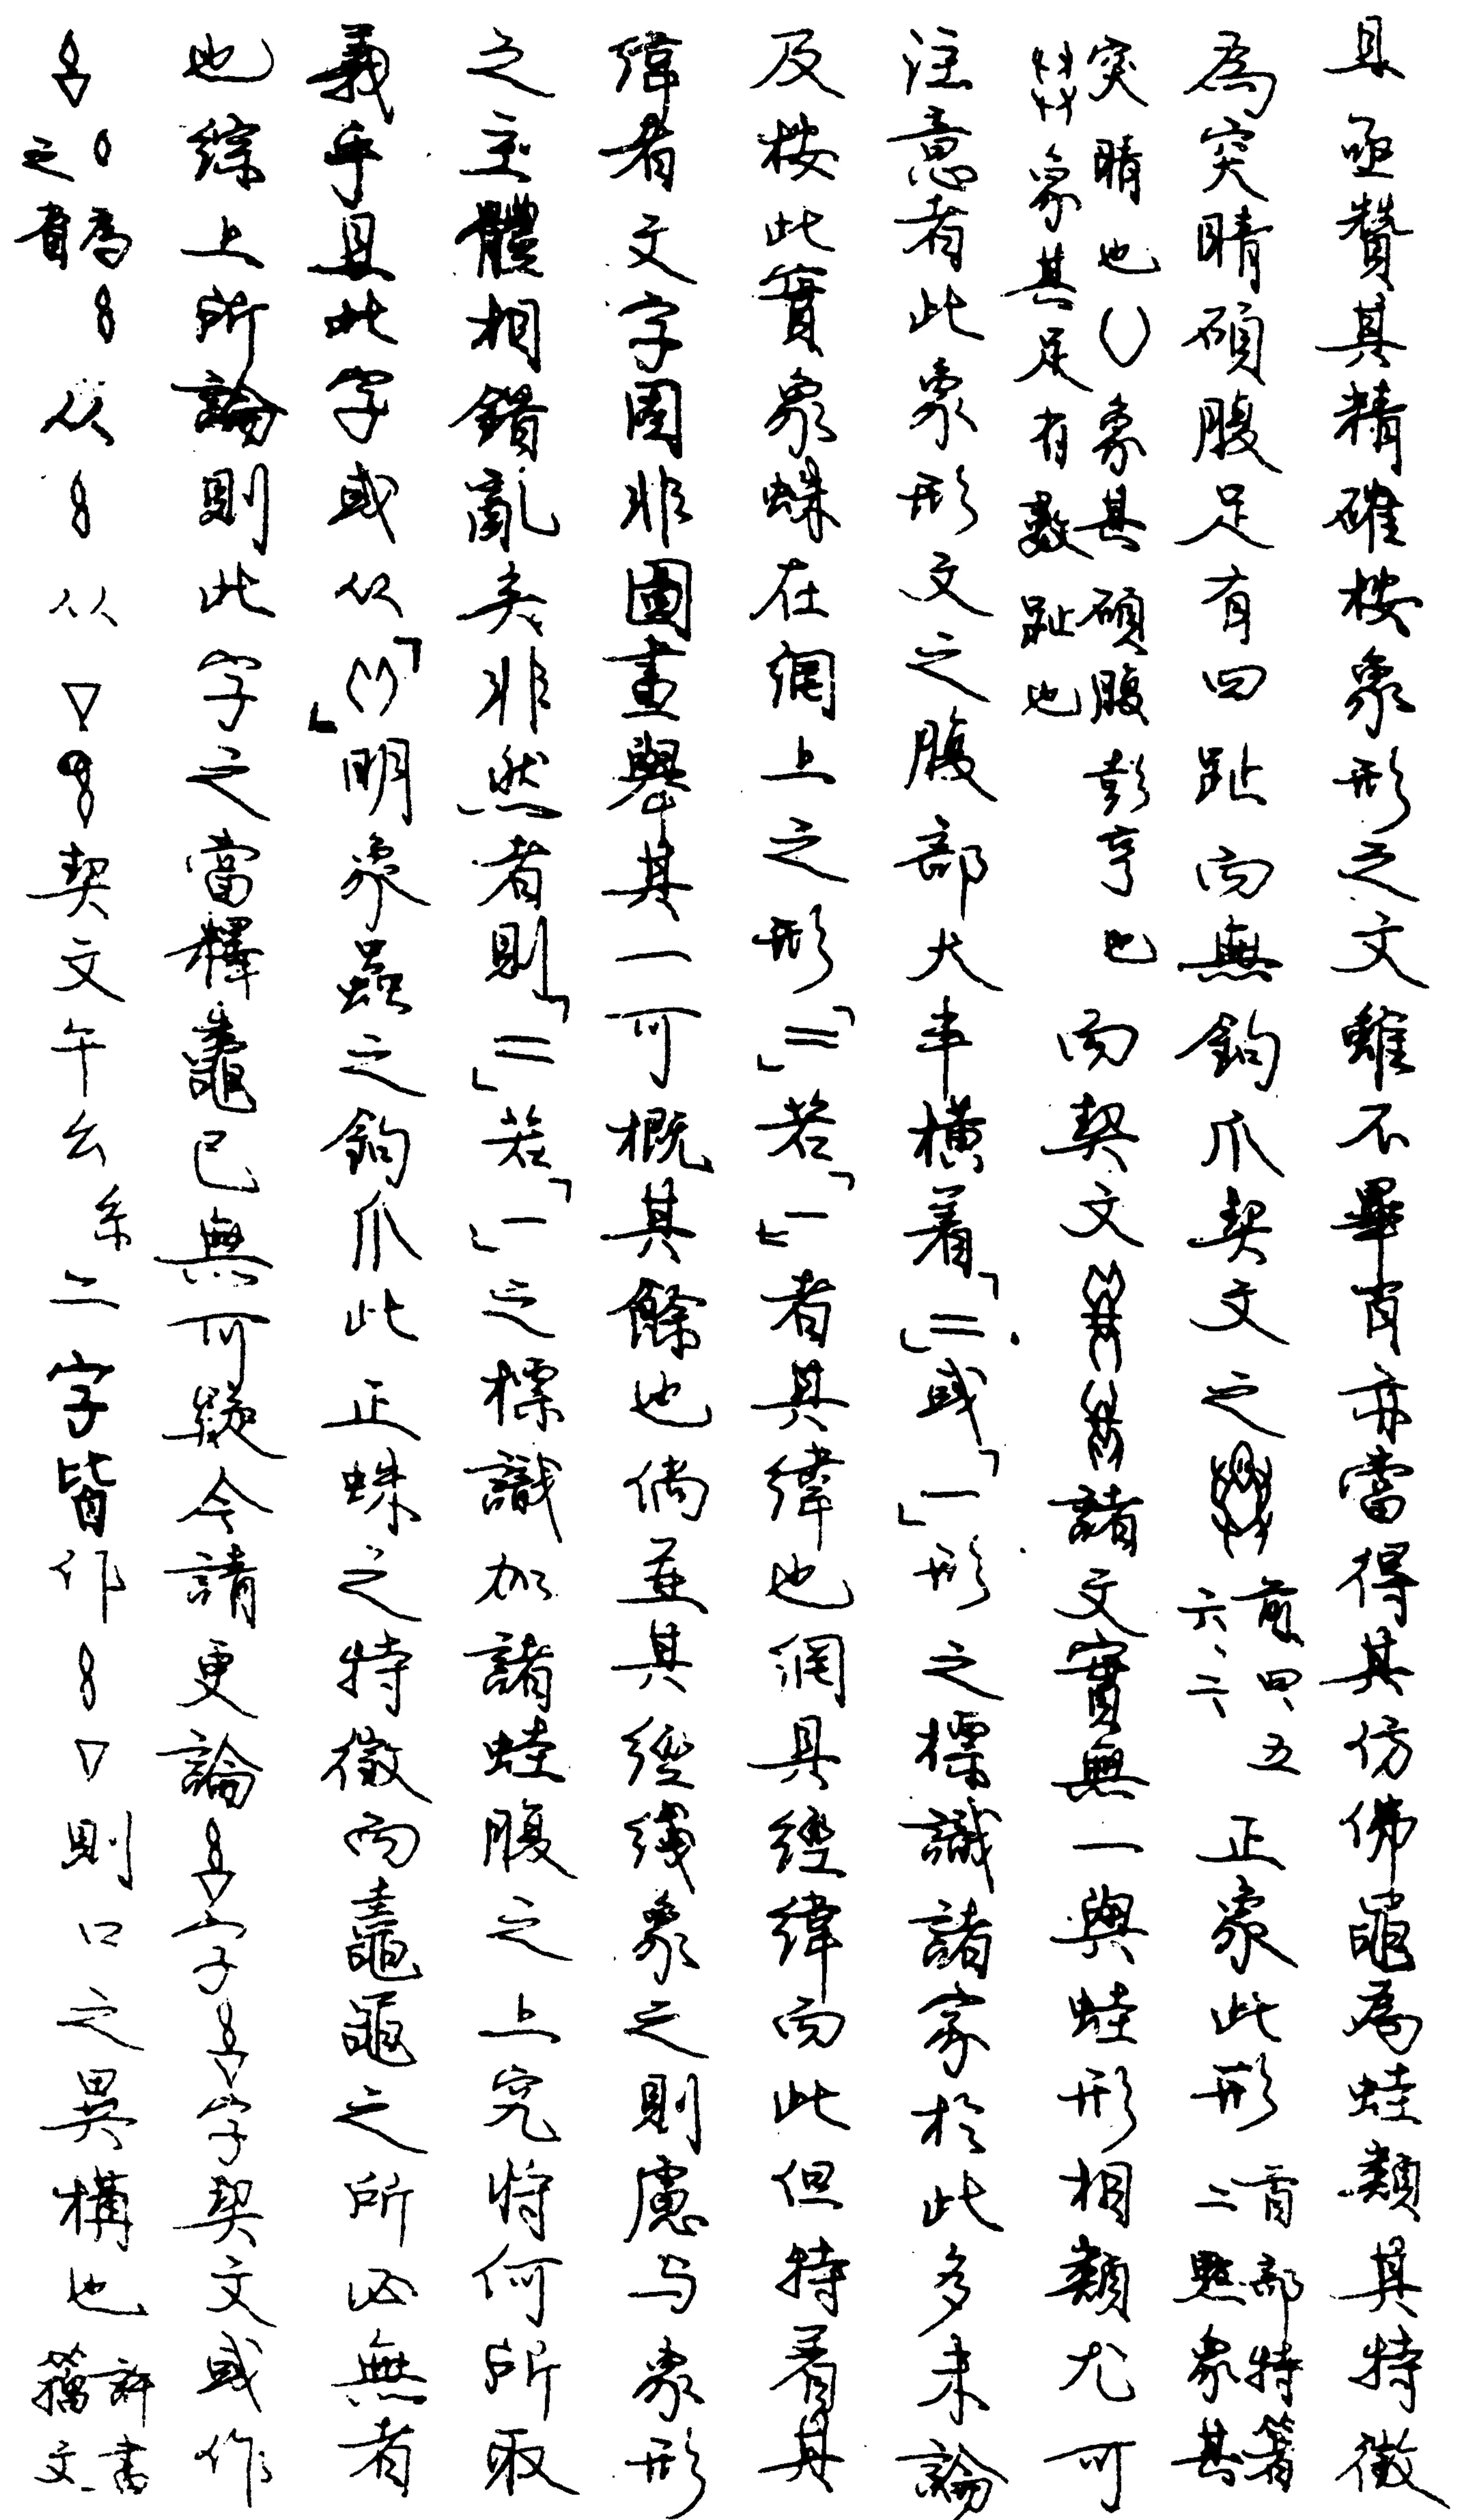 且亟贊其精確按象形之文雖不畢肖亦當得其仿佛黽為蛙類其特徵
為突睛碩腹足有四趾而無鉤爪契文之前四、五六、六正象此形首部特著二點象其
突睛也()象其碩腹彭亨也象其足有數趾也而契文諸文實無一與蛙形相類尤可
注意者此象形文之腹部大率橫着「二」或「一」形之標識諸家於此多未論
及按此實象蛛在網上之形「二」若「一」者其緯也網具經緯而此但特着其
緯者文字固非圖畫舉其一可概其餘也倘並其經綫象之則慮与象形
之主體相錯亂矣非然者則「二」若「一」之標識加諸蛙腹之上究將何所取
義乎且此字或从「」明象蟲之鉤爪此正蛛之特徵而鼄黽之所必無者
也綜上所論則此字之當釋鼄已無可疑今請更論字字契文或作
之為从从契文午幺糸二字皆作則口之異構也許書籀文